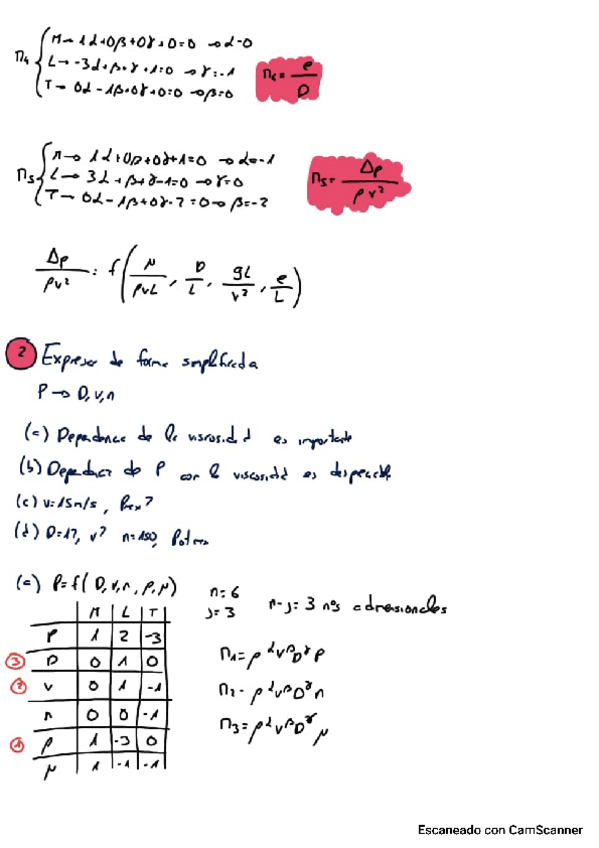 Π4 { M → 1α+0β+0γ+0=0 → α=0
L → -3α+β+γ+1=0 → γ=-1 Π4 = e/D
T → 0α-1β+0γ+0=0 → β=0
Π5 { M → 1α+0β+0γ+1=0 → α=-1
L → 3α+β+γ-1=0 → γ=0 Π5 = Δp/ρv²
T → 0α-1β+0γ-2=0 → β=-2
Δp/ρv² = f(μ/ρvL, D/L, gL/v², e/L)
2 Expresar de forma simplificada
P → D, v, n
(a) Dependencia de la viscosidad es importante
(b) Dependencia de P con la viscosidad es despreciable
(c) v=15m/s, Pmax?
(d) D=1?, v? n=150, Potencia
(a) P=f(D,v,n,ρ,μ) n=6
j=3 n-j=3 nos adimensionales
M L T
P 1 2 -3
3 D 0 1 0 Π1=ρ^α v^β D^γ P
2 v 0 1 -1 Π2=ρ^α v^β D^γ n
n 0 0 -1 Π3=ρ^α v^β D^γ μ
1 ρ 1 -3 0
μ 1 -1 -1
Escaneado con CamScanner